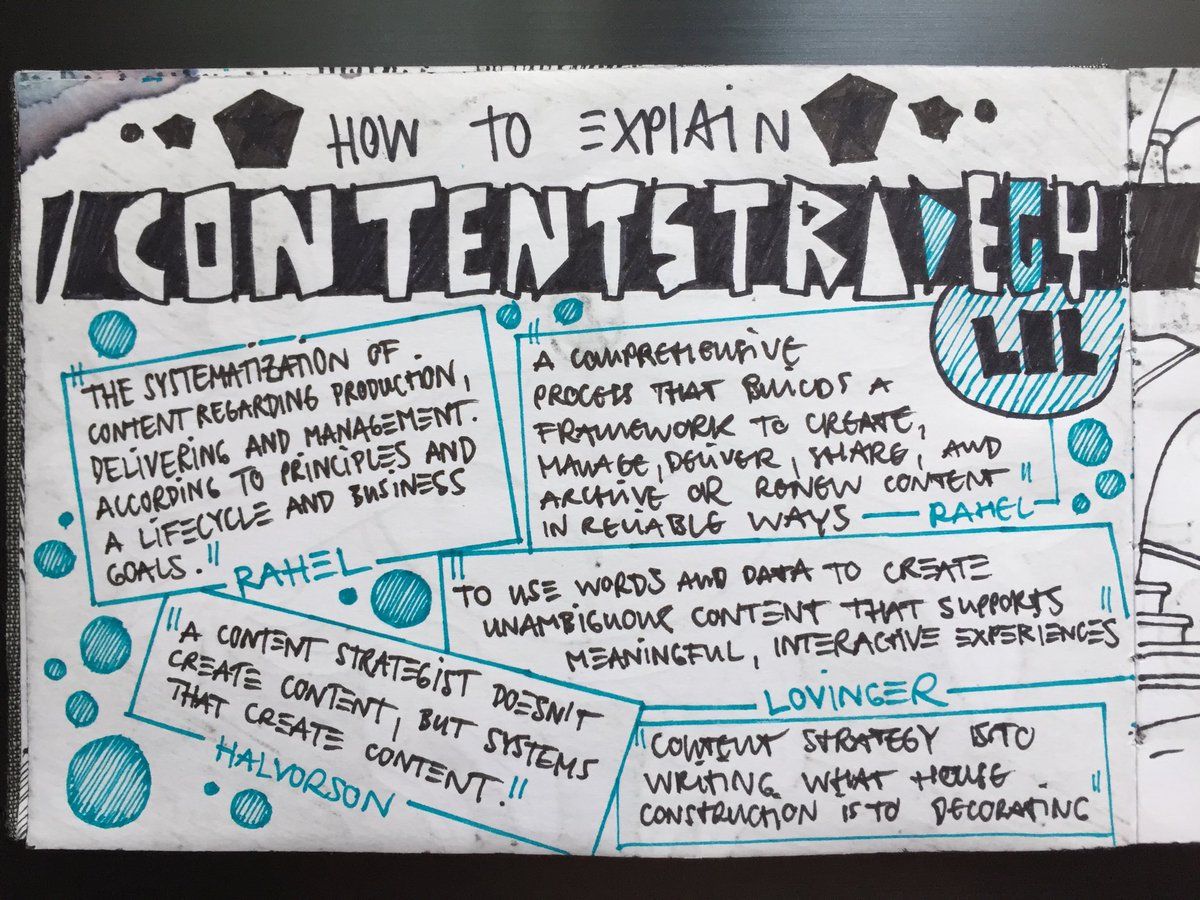 HOW TO EXPLAIN
CONTENTSTRATEGY
LIL
"THE SYSTEMATIZATION OF
CONTENT REGARDING PRODUCTION,
DELIVERING AND MANAGEMENT.
ACCORDING TO PRINCIPLES AND
A LIFECYCLE AND BUSINESS
GOALS."
RAHEL
"A COMPREHENSIVE
PROCESS THAT BUILDS A
FRAMEWORK TO CREATE,
MANAGE, DELIVER, SHARE, AND
ARCHIVE OR RENEW CONTENT"
IN RELIABLE WAYS — RAHEL
"TO USE WORDS AND DATA TO CREATE
UNAMBIGUOUS CONTENT THAT SUPPORTS
MEANINGFUL, INTERACTIVE EXPERIENCES"
LOVINGER
"A CONTENT STRATEGIST DOESN'T
CREATE CONTENT, BUT SYSTEMS
THAT CREATE CONTENT."
HALVORSON
"CONTENT STRATEGY IS TO
WRITING WHAT HOUSE
CONSTRUCTION IS TO DECORATING"